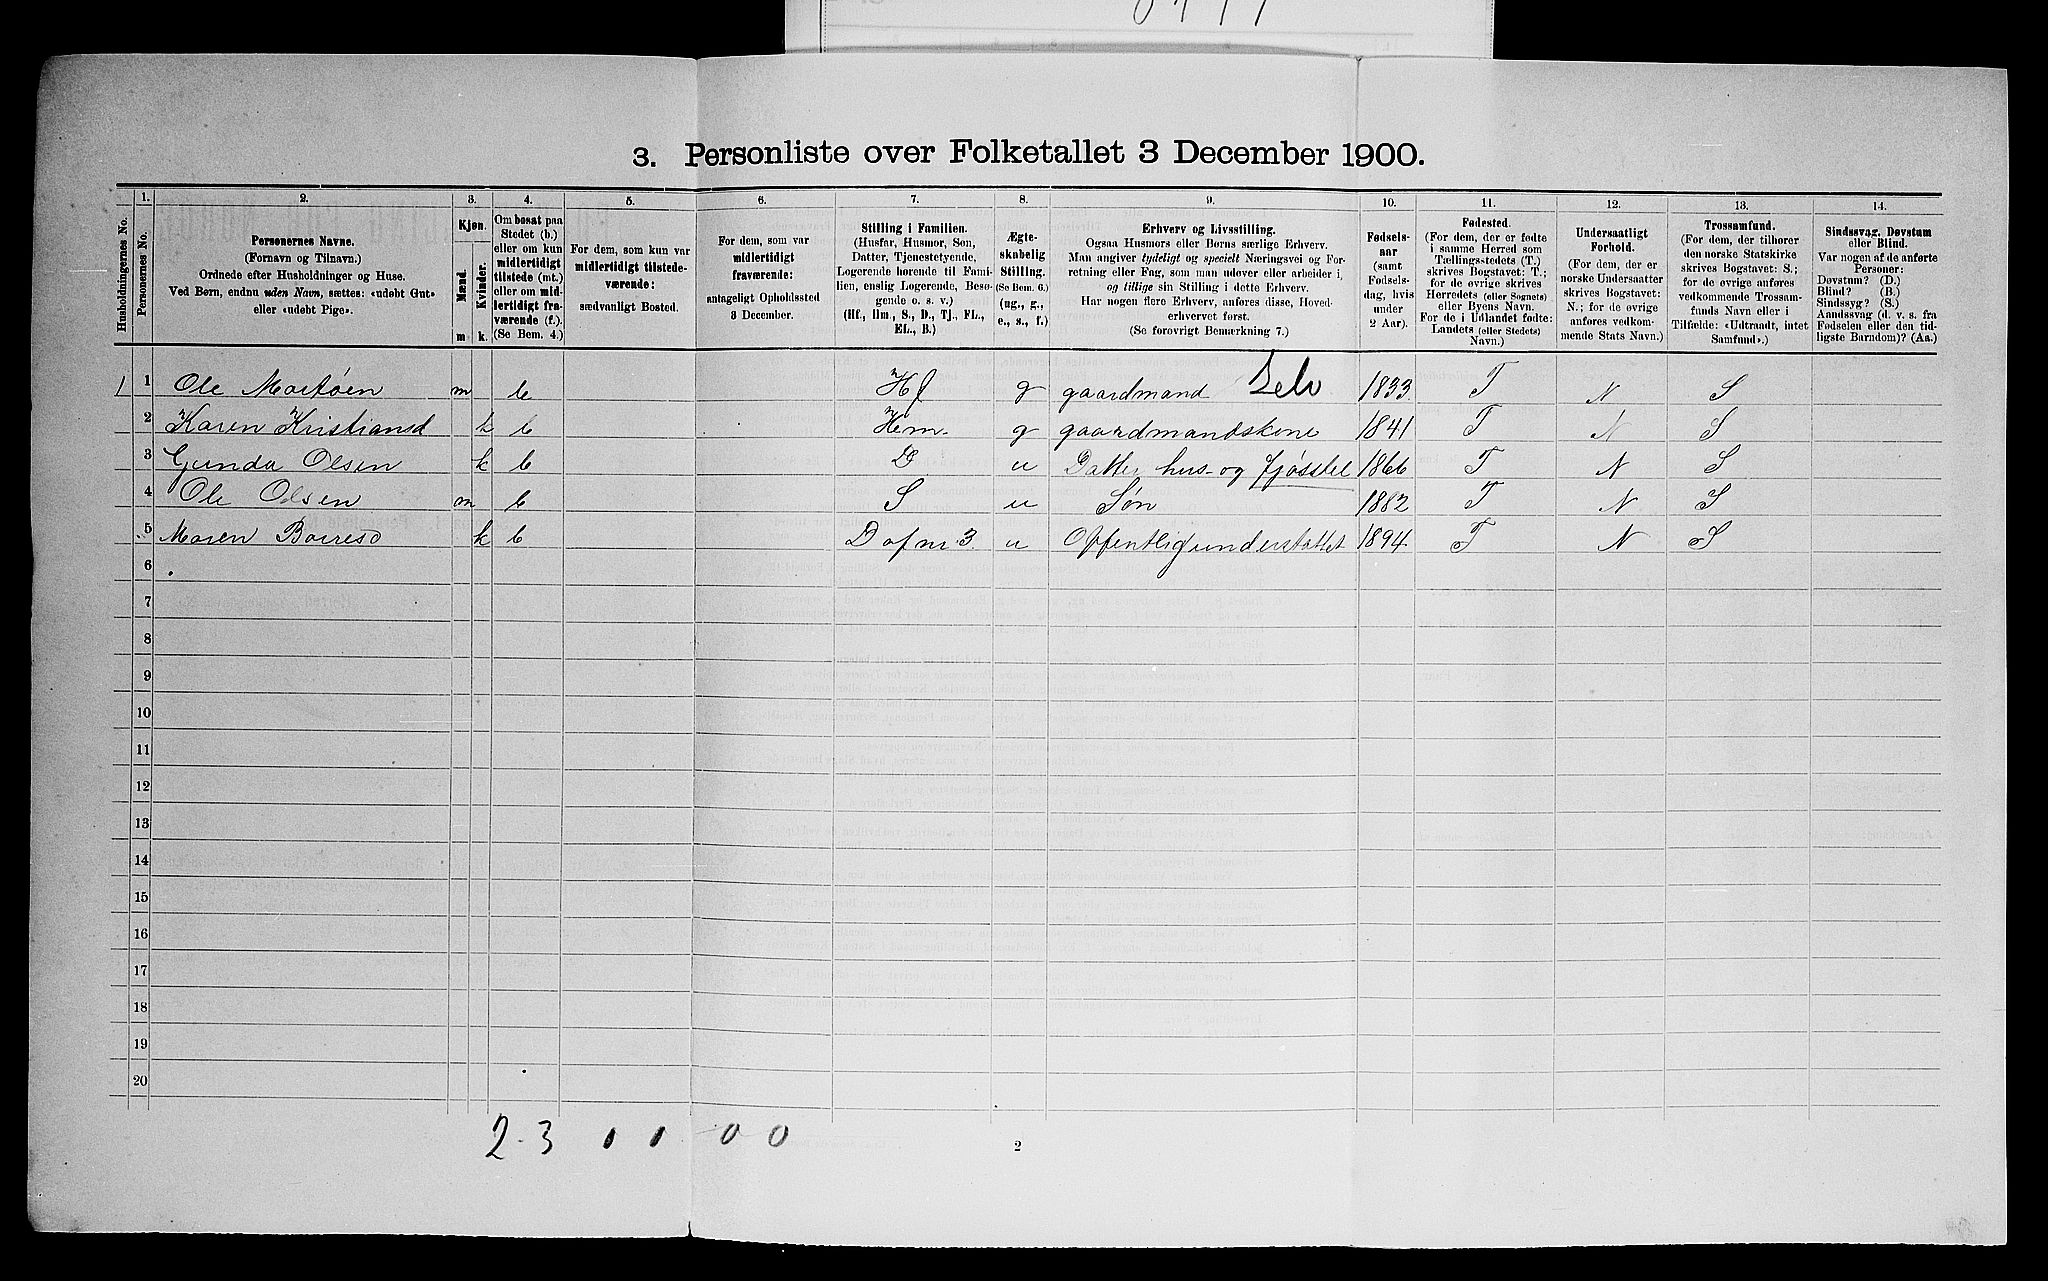 3. Personliste over Folketallet 3 December 1900.
Husholdningernes No.
1. Personernes No.
2. Personernes Navne. (Fornavn og Tilnavn.) Ordnede efter Husholdninger og Huse. Ved Børn, endnu uden Navn, sættes: «udøbt Gut» eller «udøbt Pige».
3. Kjøn. Mænd. m Kvinder. k.
4. Om bosat paa Stedet (b.) eller om kun midlertidigt tilstede (mt.) eller om midlertidigt fraværende (f.). (Se Bem. 4.)
5. For dem, som kun var midlertidigt tilstedeværende: sædvanligt Bosted.
6. For dem, som var midlertidigt fraværende: antageligt Opholdssted 3 December.
7. Stilling i Familien. (Husfar, Husmor, Søn, Datter, Tjenestetyende, Logerende hørende til Familien, enslig Logerende, Besøgende o. s. v.) (Hf., Hm., S., D., Tj., FL., EL., B.)
8. Ægteskabelig Stilling. (Se Bem. 6.) (ug., g., e., s., f.)
9. Erhverv og Livsstilling. Ogsaa Husmors eller Børns særlige Erhverv. Man angiver tydeligt og specielt Næringsvei og Forretning eller Fag, som man udøver eller arbeider i, og tillige sin Stilling i dette Erhverv. Har nogen flere Erhverv, anføres disse, Hovederhvervet først. (Se forøvrigt Bemærkning 7.)
10. Fødselsaar (samt Fødselsdag, hvis under 2 Aar).
11. Fødested. (For dem, der er fødte i samme Herred som Tællingsstedets (T.) skrives Bogstavet: T.; for de øvrige skrives Herredets (eller Sognets) eller Byens Navn. For de i Udlandet fødte: Landets (eller Stedets) Navn.)
12. Undersaatligt Forhold. (For dem, der er norske Undersaatter skrives Bogstavet: N.; for de øvrige anføres vedkommende Stats Navn.)
13. Trossamfund. (For dem, der tilhører den norske Statskirke skrives Bogstavet: S.; for de øvrige anføres vedkommende Trossamfunds Navn eller i Tilfælde: «Udtraadt, intet Samfund».)
14. Sindssvag, Døvstum eller Blind. Var nogen af de anførte Personer: Døvstum? (D.) Blind? (B.) Sindssyg? (S.) Aandssvag (d. v. s. fra Fødselen eller den tidligste Barndom)? (Aa.)
1 1 Ole m b Hf g gaardmand Selv 1833 T N S
2 Karen Kristiansd k b Hm g gaardmandskone 1841 T N S
3 Gunda Olsen k b D u Datter hus- og fjøsstel 1866 T N S
4 Ole Olsen m b S u Søn 1882 T N S
5 Maren k b D af nr. 3. u Offentlig understøttet 1894 T N S
6
7
8
9
10
11
12
13
14
15
16
17
18
19
20
2-3 1 1 0 0
2